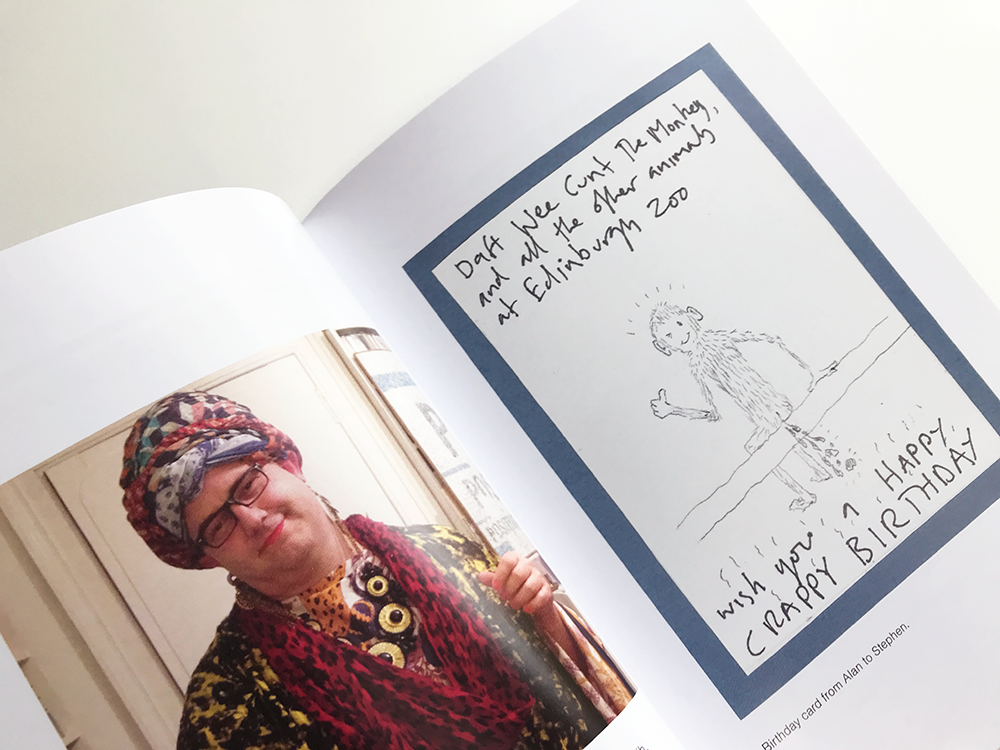 Daft Wee Cunt The Monkey,
and all the other animals
at Edinburgh Zoo
wish you ^ HAPPY
CRAPPY BIRTHDAY
Birthday card from Alan to Stephen.